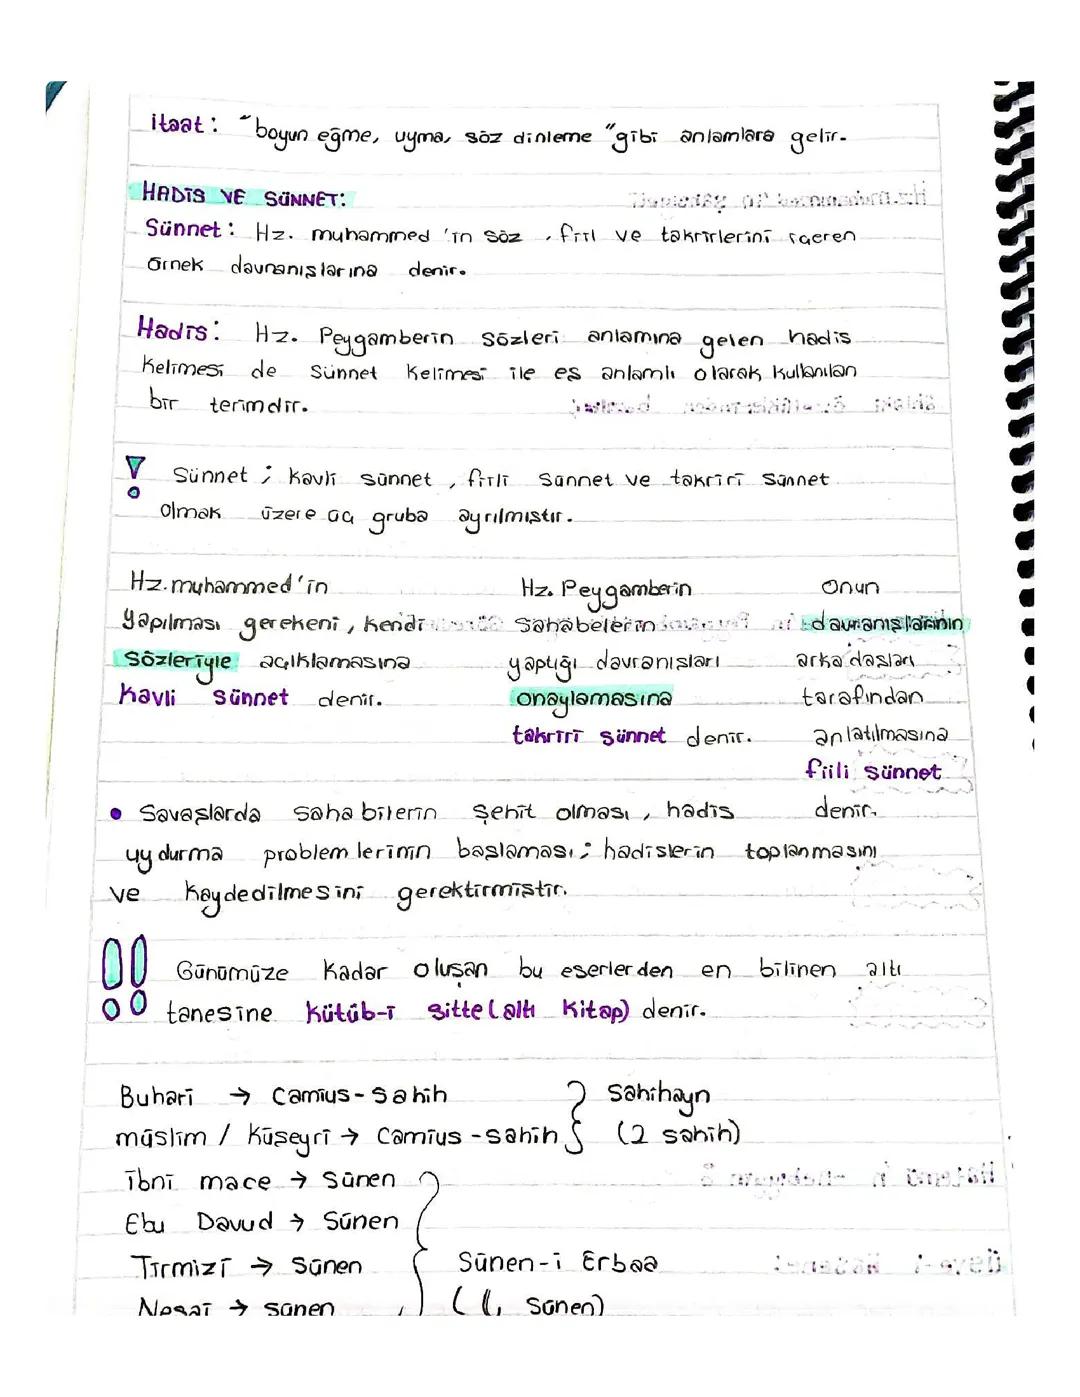 itaat: "boyun eğme, uyma, söz dinleme" gibi anlamlara gelir.
HADİS VE SÜNNET:
Sünnet: Hz. muhammed'in söz, fiil ve takrirlerini içeren
örnek davranışlarına denir.
Hadis: Hz. Peygamberin sözleri anlamına gelen hadis
kelimesi de sünnet kelimesi ile eş anlamlı olarak kullanılan
bir terimdir.
! Sünnet; kavli sünnet, fiili sünnet ve takriri sünnet
olmak üzere üç gruba ayrılmıştır.
Hz. muhammed'in
yapılması gerekeni, kendi
sözleriyle açıklamasına
kavli sünnet denir.
Hz. Peygamberin
sahabelerin
yaptığı davranışları
onaylamasına
takriri sünnet denir.
Onun
davranışlarının
arkadaşları
tarafından
anlatılmasına
fiili sünnet
denir.
• Savaşlarda sahabilerin şehit olması, hadis
uydurma problemlerinin başlaması; hadislerin toplanmasını
ve kaydedilmesini gerektirmiştir.
!! Günümüze kadar oluşan bu eserlerden en bilinen altı
tanesine kütüb-i sitte (altı kitap) denir.
Buhari → Camius-sahih } sahihayn
müslim / Küseyri → Camius-sahih } (2 sahih)
ibni mace → Sünen
Ebu Davud → Sünen
Tirmizi → Sünen } Sünen-i Erbaa
Nesai → sünen } (4 Sünen)